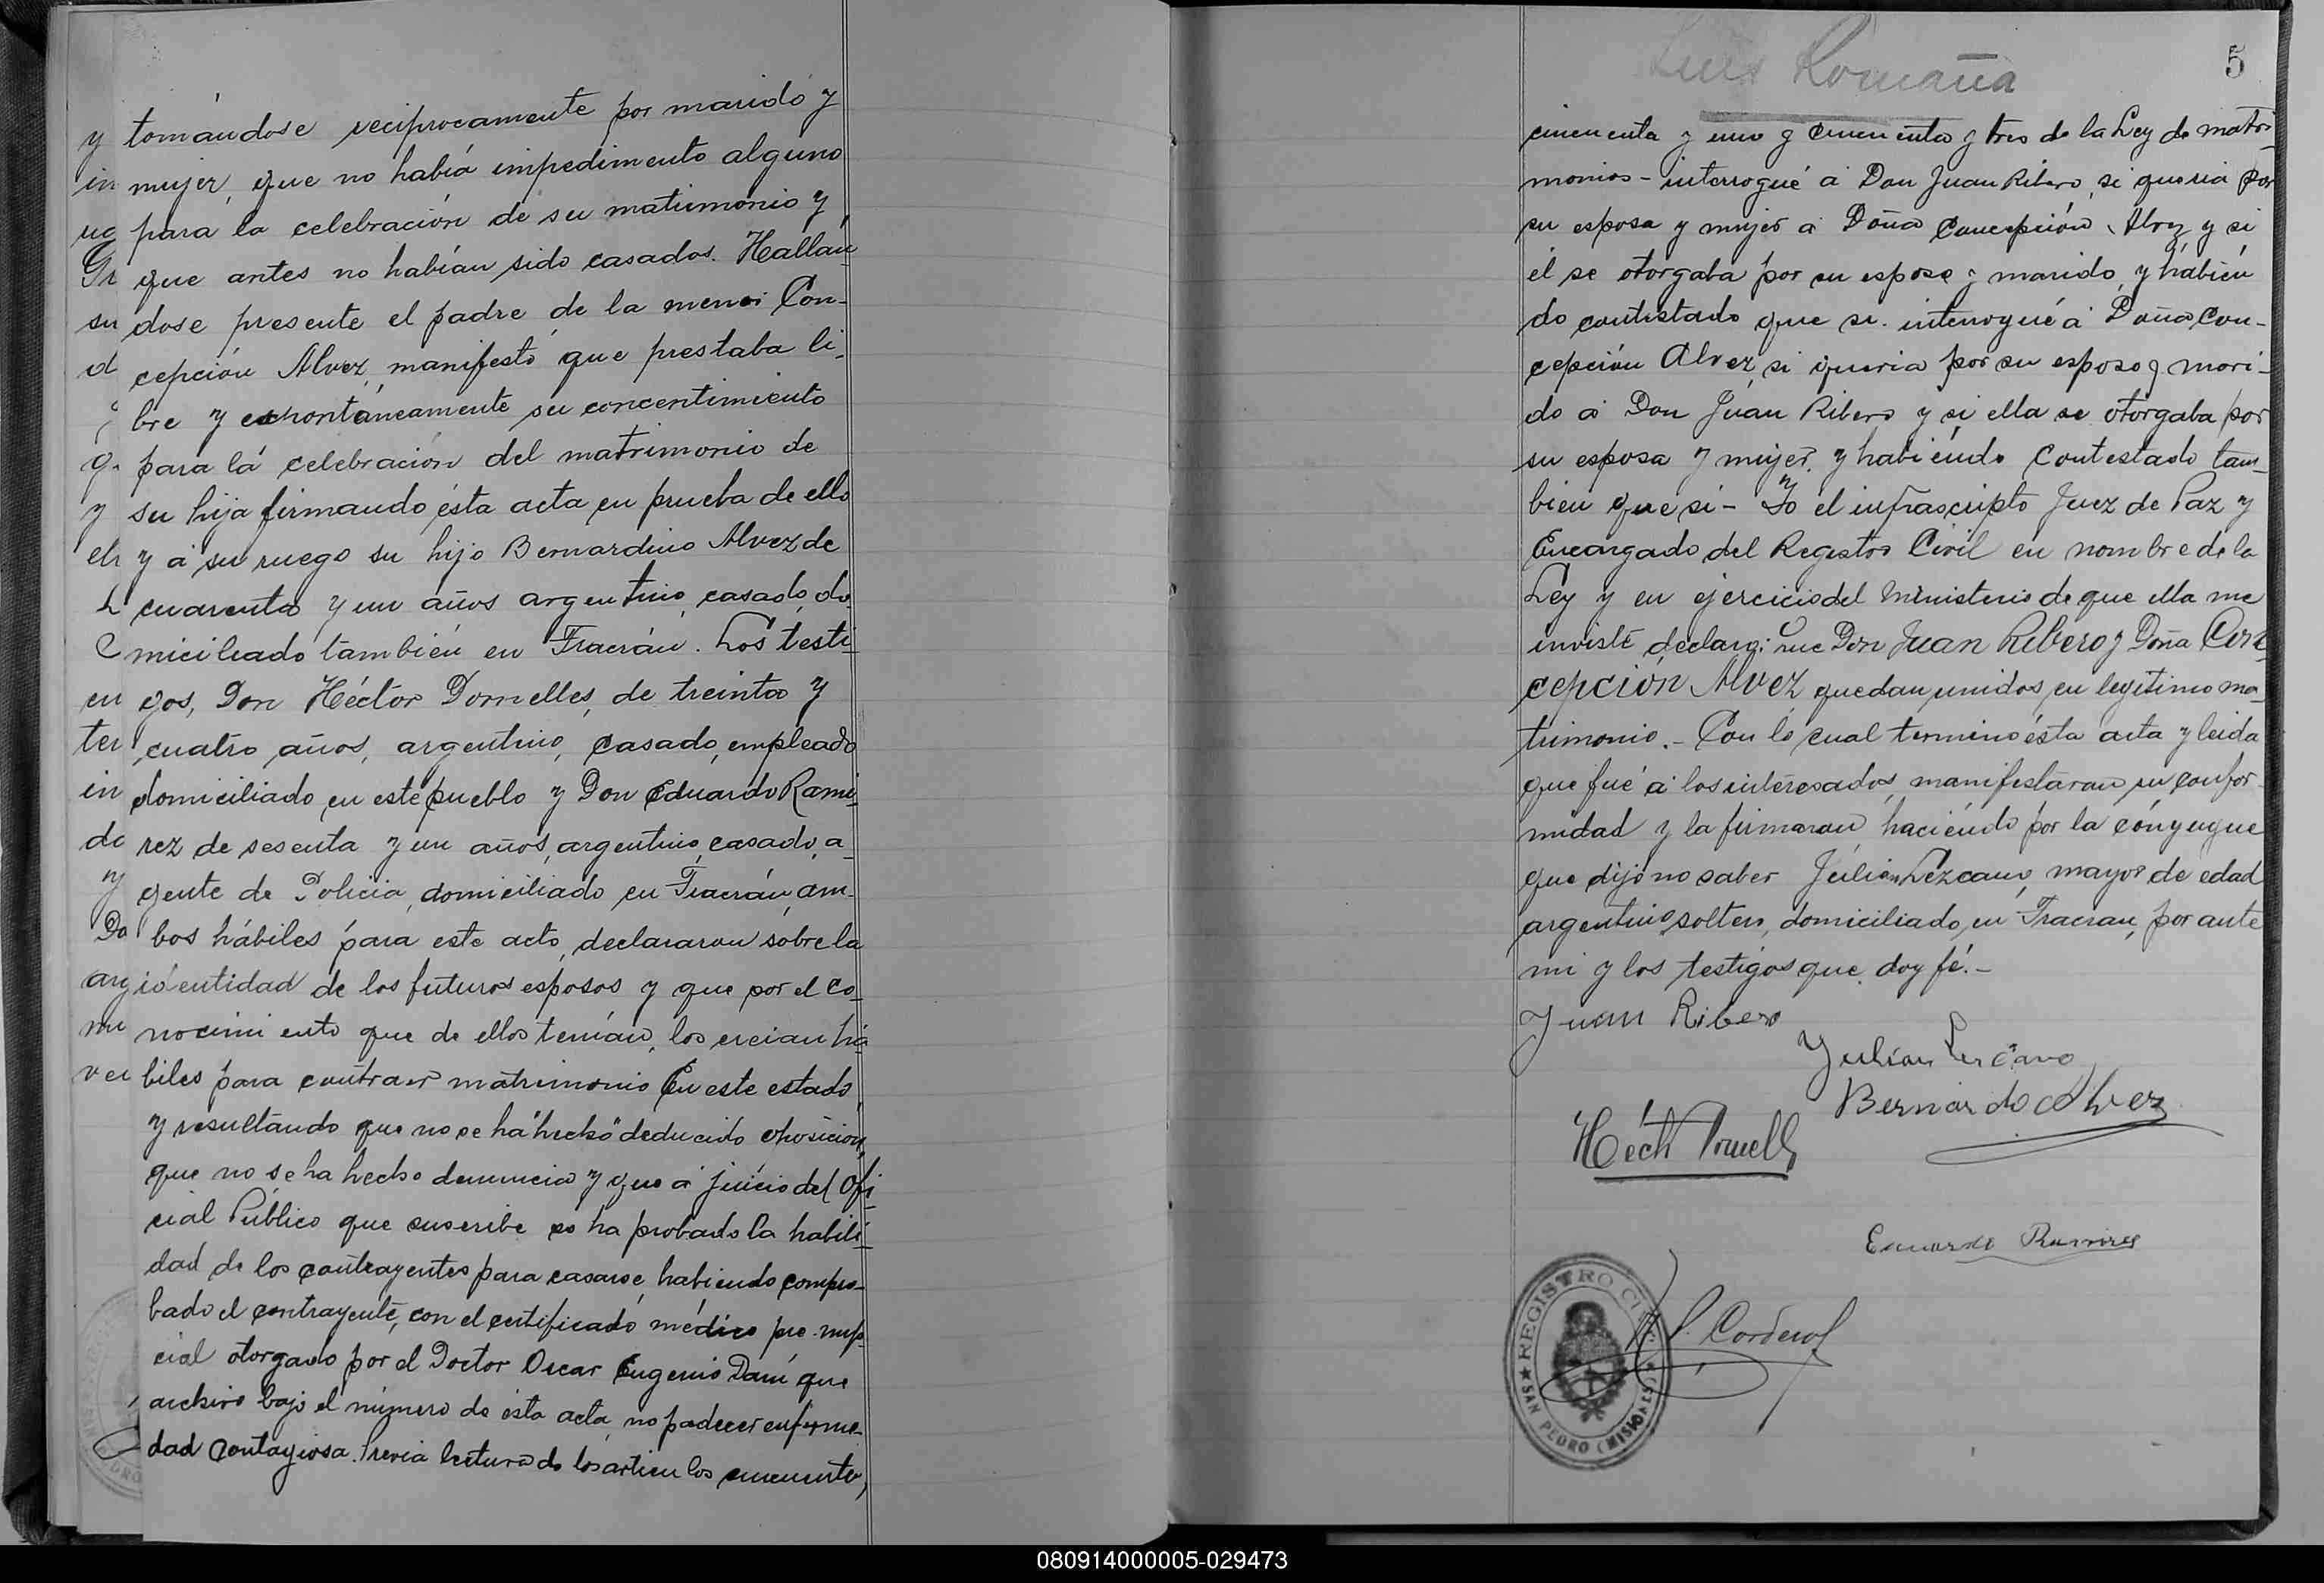 tomándose reciprocamente por marido y
mujer, que no había impedimento alguno
para la celebración de su matrimonio y
que antes no habían sido casados. Hallán-
dose presente el padre de la menor Con-
cepción Alvez, manifestó que prestaba li-
bre y espontáneamente su concentimiento
para la celebración del matrimonio de
su hija firmando ésta acta en prueba de ello
y á su ruego su hijo Bernardino Alvez de
cuarenta y un años argentino, casado, do-
miciliado también en Fracrán. Los testi-
gos, Don Héctor Dornelles, de treinta y
cuatro años, argentino, casado, empleado
domiciliado en este pueblo y Don Eduardo Rami-
rez de sesenta y un años, argentino, casado, a-
gente de Policia, domiciliado en Fracrán, am-
bos hábiles para este acto, declararon sobre la
identidad de los futuros esposos y que por el co-
nocimiento que de ellos tenían, los creian há-
biles para contraer matrimonio En este estado,
y resultando que no se ha "hecho" deducido oposición,
que no se ha hecho denuncia y que á juicio del Ofi-
cial Público que suscribe se ha probado la habili-
dad de los contrayentes para casarse, habiendo compro-
bado el contrayente, con el certificado médico pre-nup-
cial otorgado por el Doctor Oscar Eugenio Dani que
archivo bajo el número de ésta acta, no padecer enferme-
dad contagiosa. Previa lectura de los articulos cincuenta,
Luis Romaña
5
cincuenta y uno y cincuenta y tres de la Ley de matri-
monios - interrogué á Don Juan Ribero, si queria por
su esposa y mujer á Doña Concepción Alvez y si
él se otorgaba por su esposo y marido, y habién
do contestado que si. interrogué á Doña Con-
cepción Alvez, si queria por su esposo y mari-
do á Don Juan Ribero y si ella se otorgaba por
su esposa y mujer. y habiéndo contestado tam-
bien que si - Yo el infrascripto Juez de Paz y
Encargado del Registro Civil en nombre de la
Ley y en ejercicio del Ministerio de que ella me
inviste declaro: Que Don Juan Ribero y Doña Con-
cepción Alvez quedan unidos en legitimo ma-
trimonio. - Con lo cual terminó ésta acta y leida
que fué á los interesados, manifestaron su confor-
midad y la firmaron haciéndo por la cónyugue
que dijo no saber Julian Lezcano, mayor de edad
argentino, soltero, domiciliado en Fracran, por ante
mi y los testigos que doy fé. -
Juan Ribero
Julian Lezcano
Bernardo Alvez
Eduardo Ramirez
Cordero
REGISTRO CIVIL
SAN PEDRO (MISIONES)
080914000005-029473